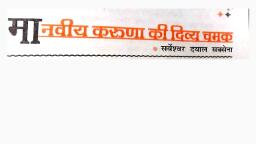 मानवीय करुणा की दिव्य चमक
● सर्वेश्वर दयाल सक्सेना